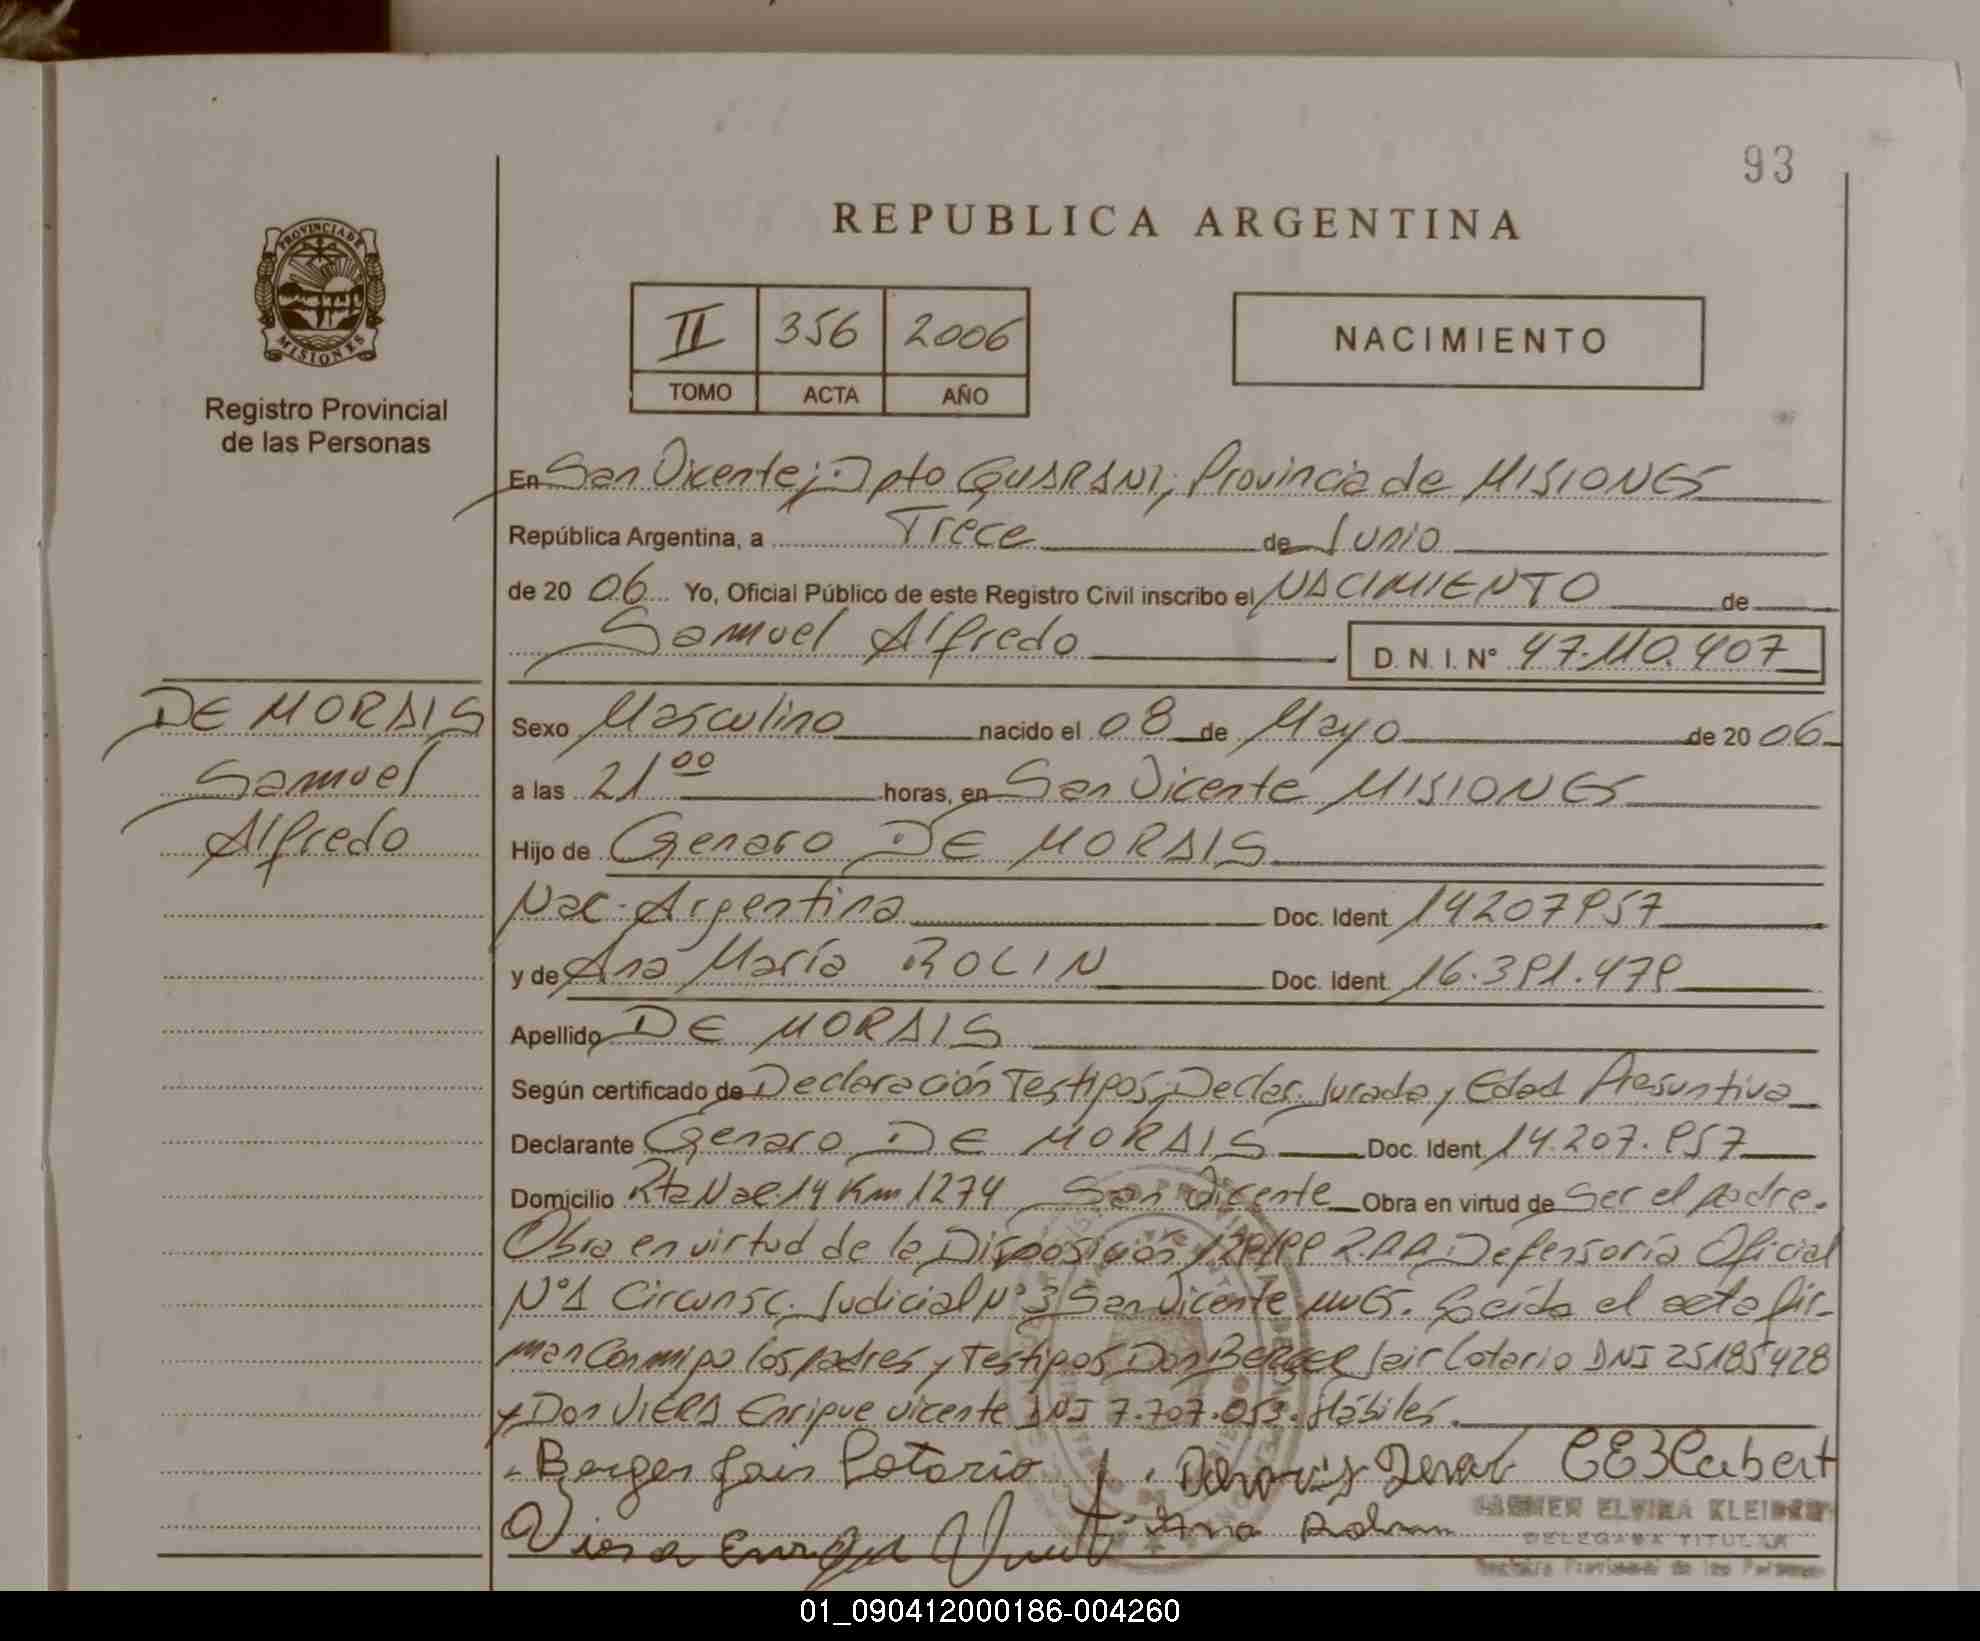 93
REPUBLICA ARGENTINA
PROVINCIA DE
MISIONES
Registro Provincial
de las Personas
II 356 2006
TOMO ACTA AÑO
NACIMIENTO
En San Vicente; Dpto GUARANI; Provincia de MISIONES
República Argentina, a Trece de Junio
de 20 06 Yo, Oficial Público de este Registro Civil inscribo el NACIMIENTO de
Samuel Alfredo D. N. I. N° 47.110.407
DE MORAIS
Samuel
Alfredo
Sexo Masculino nacido el 08 de Mayo de 20 06
a las 21 00 horas, en San Vicente MISIONES
Hijo de Genaro DE MORAIS
Nac. Argentina Doc. Ident. 14207957
y de Ana María ROLIN Doc. Ident. 16.391.479
Apellido DE MORAIS
Según certificado de Declaración Testigos, Declar. Jurada y Edad Presuntiva
Declarante Genaro DE MORAIS Doc. Ident. 14.207.957
Domicilio Rta Nac. 14 Km 1274 San Vicente Obra en virtud de Ser el padre.
Obra en virtud de la Disposición Defensoría Oficial
N°1 Circunsc. Judicial N°3 San Vicente Leída el acta fir-
man conmigo los padres y Testigos Don BERGER Jair Lotario DNI 25185428
y Don VIERA Enrique Vicente DNI 7.707.053. Hábiles.
Berger Jair Lotario
Viera Enrique
Ana
DELEGADA TITULAR
Registro Provincial de las Personas
01_090412000186-004260